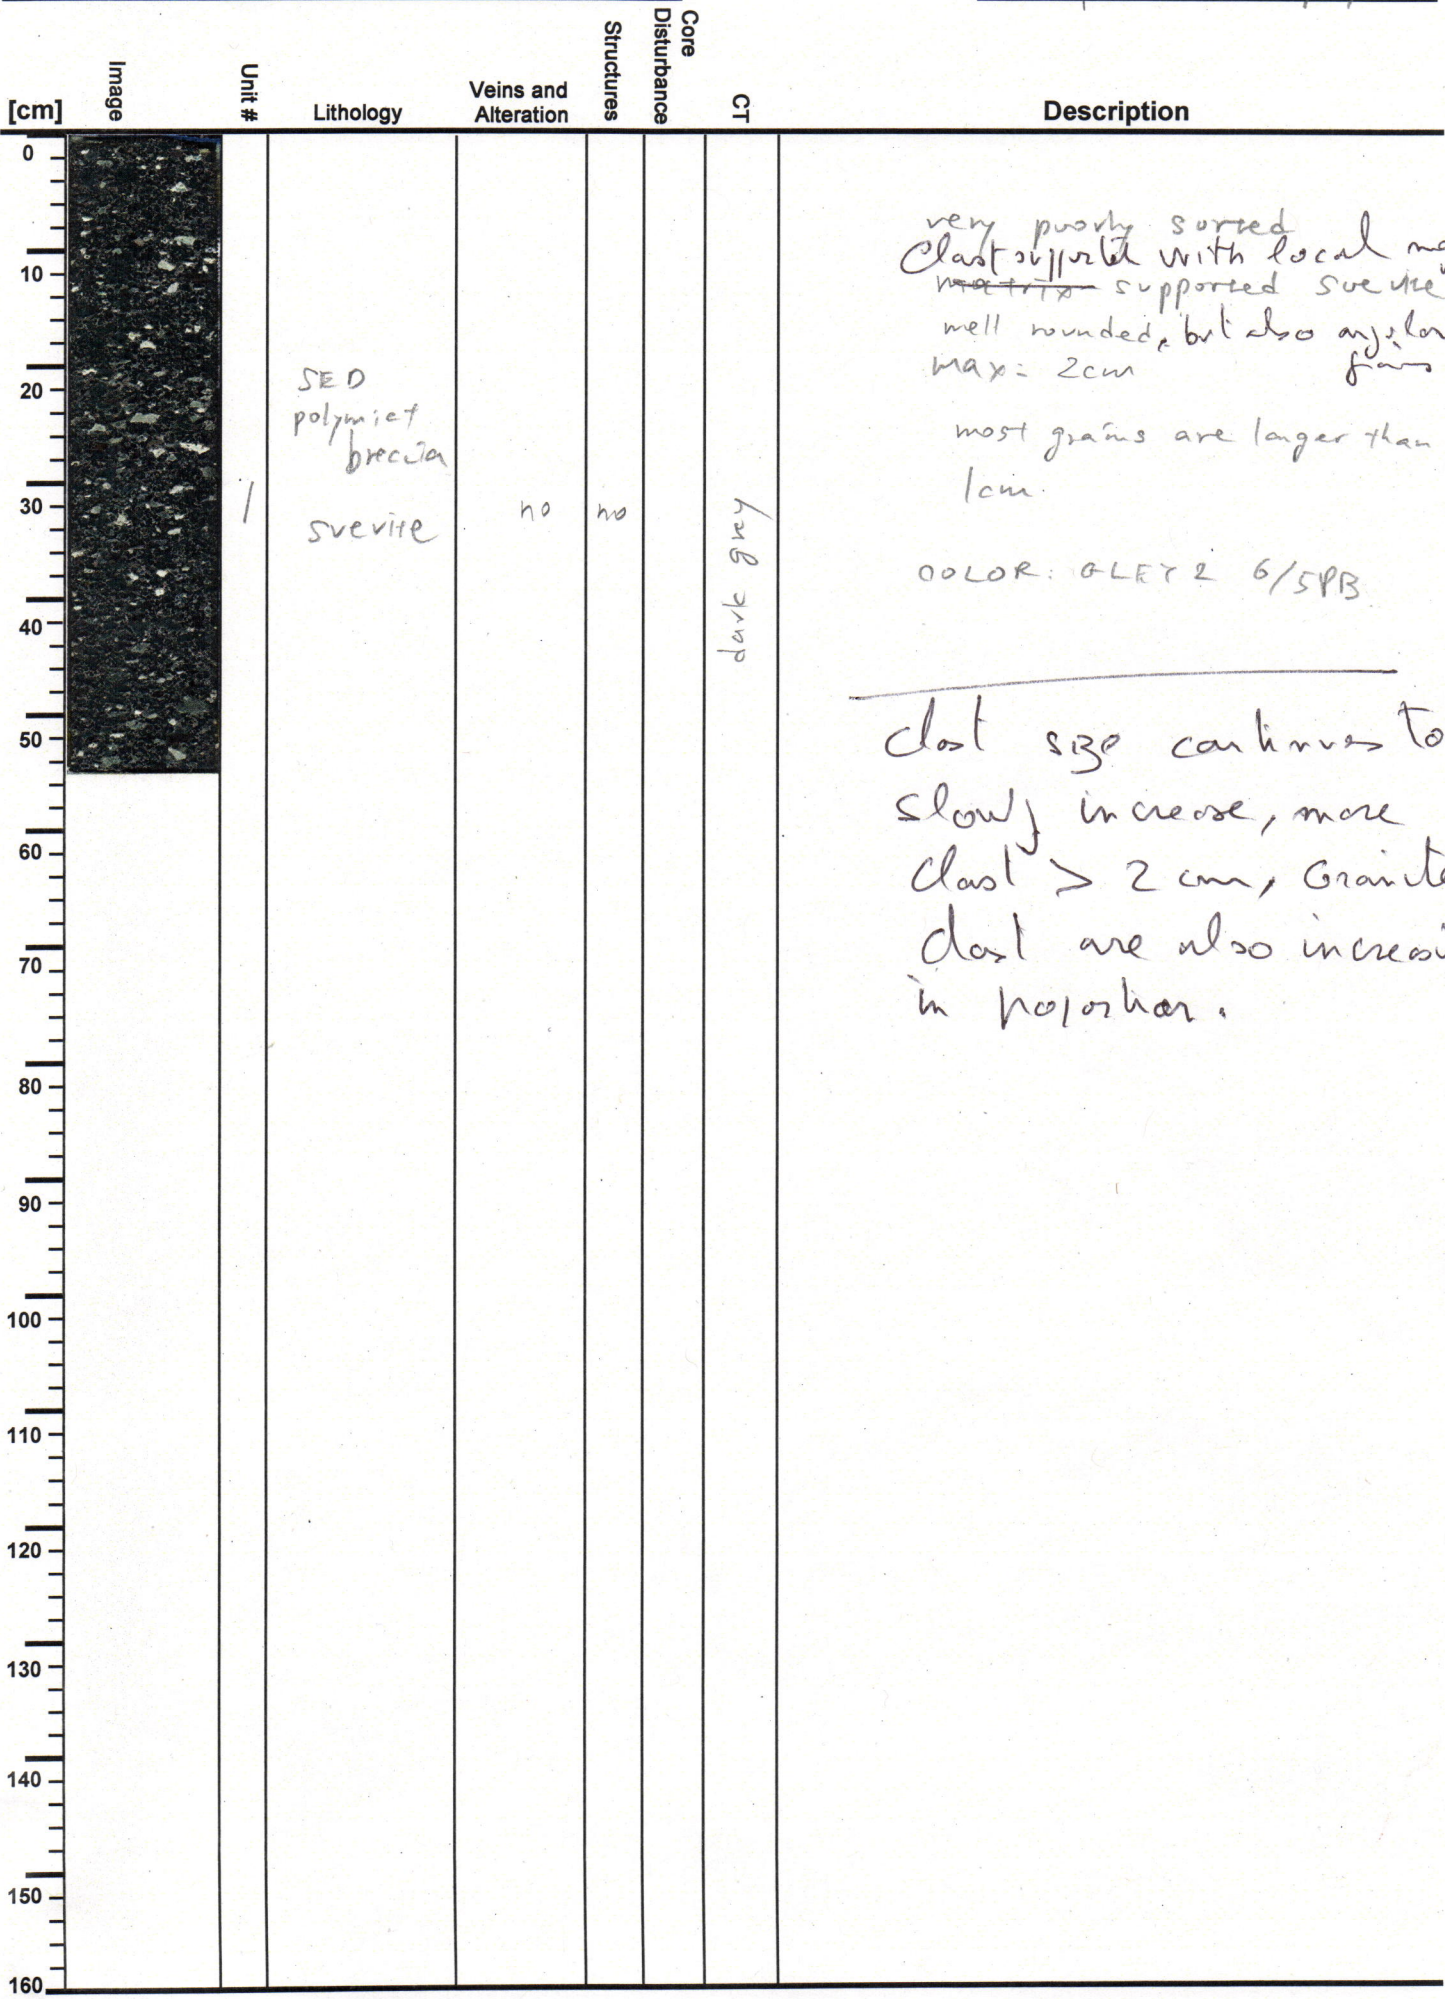 [cm]
Image
Unit #
Lithology
Veins and
Alteration
Structures
Core
Disturbance
CT
Description
0
10
20
30
40
50
60
70
80
90
100
110
120
130
140
150
160
SED
polymict
breccia
suevite
/
no
no
dark grey
very poorly sorted
Clast supported with local
matrix supported suevite
well rounded, but also angular
grains
max: 2cm
most grains are larger than
1cm.
COLOR: GLEY 2 6/5PB
Clast size continues to
slowly increase, more
clast > 2 cm, Granite
clast are also increasi
in proportion.